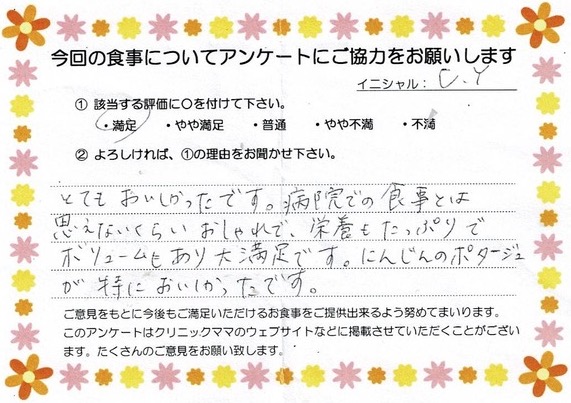 今回の食事についてアンケートにご協力をお願いします
イニシャル： U.Y
① 該当する評価に〇を付けて下さい。
・満足 ・やや満足 ・普通 ・やや不満 ・不満
② よろしければ、①の理由をお聞かせ下さい。
とてもおいしかったです。病院での食事とは
思えないくらいおしゃれで、栄養もたっぷりで
ボリュームもあり大満足です。にんじんのポタージュ
が特においしかったです。
ご意見をもとに今後もご満足いただけるお食事をご提供出来るよう努めてまいります。
このアンケートはクリニックママのウェブサイトなどに掲載させていただくことがござい
ます。たくさんのご意見をお願い致します。